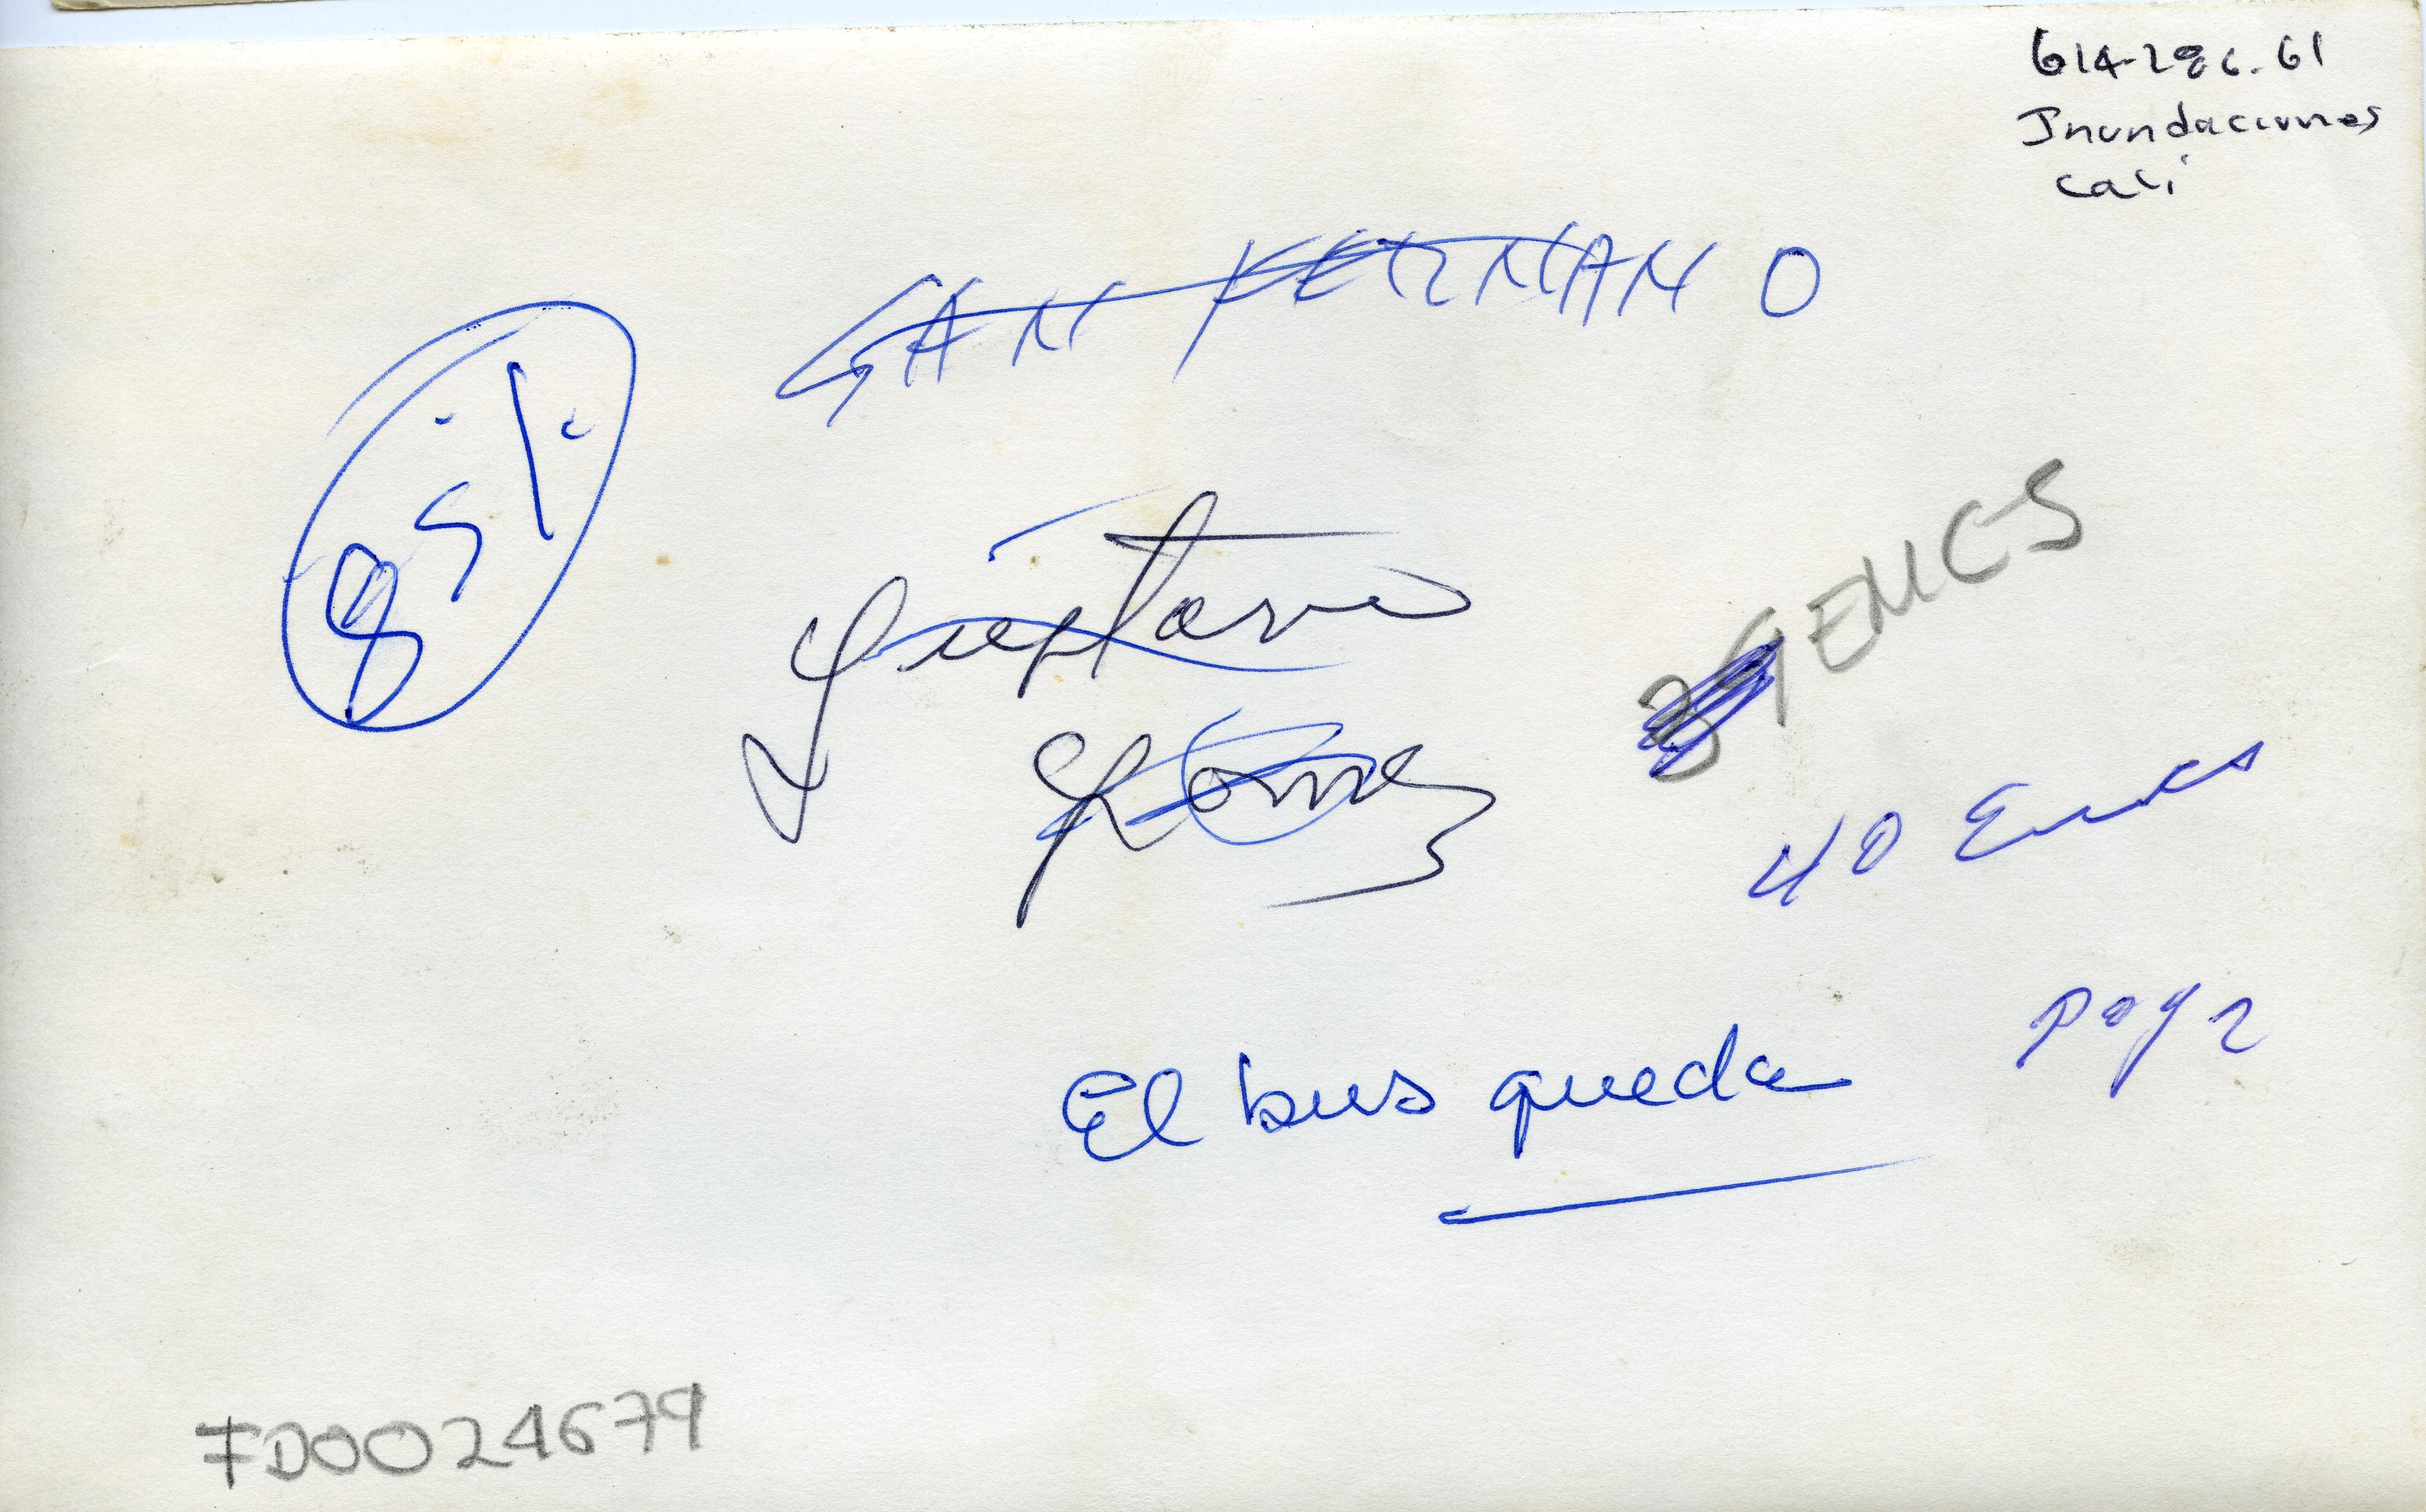 614-286.61
Inundaciones
Cali
SAN FERNANO
85%
Gustavo
Gomez
39 EMCS
40 Emcs
Pag 2
El bus queda
FD0024679